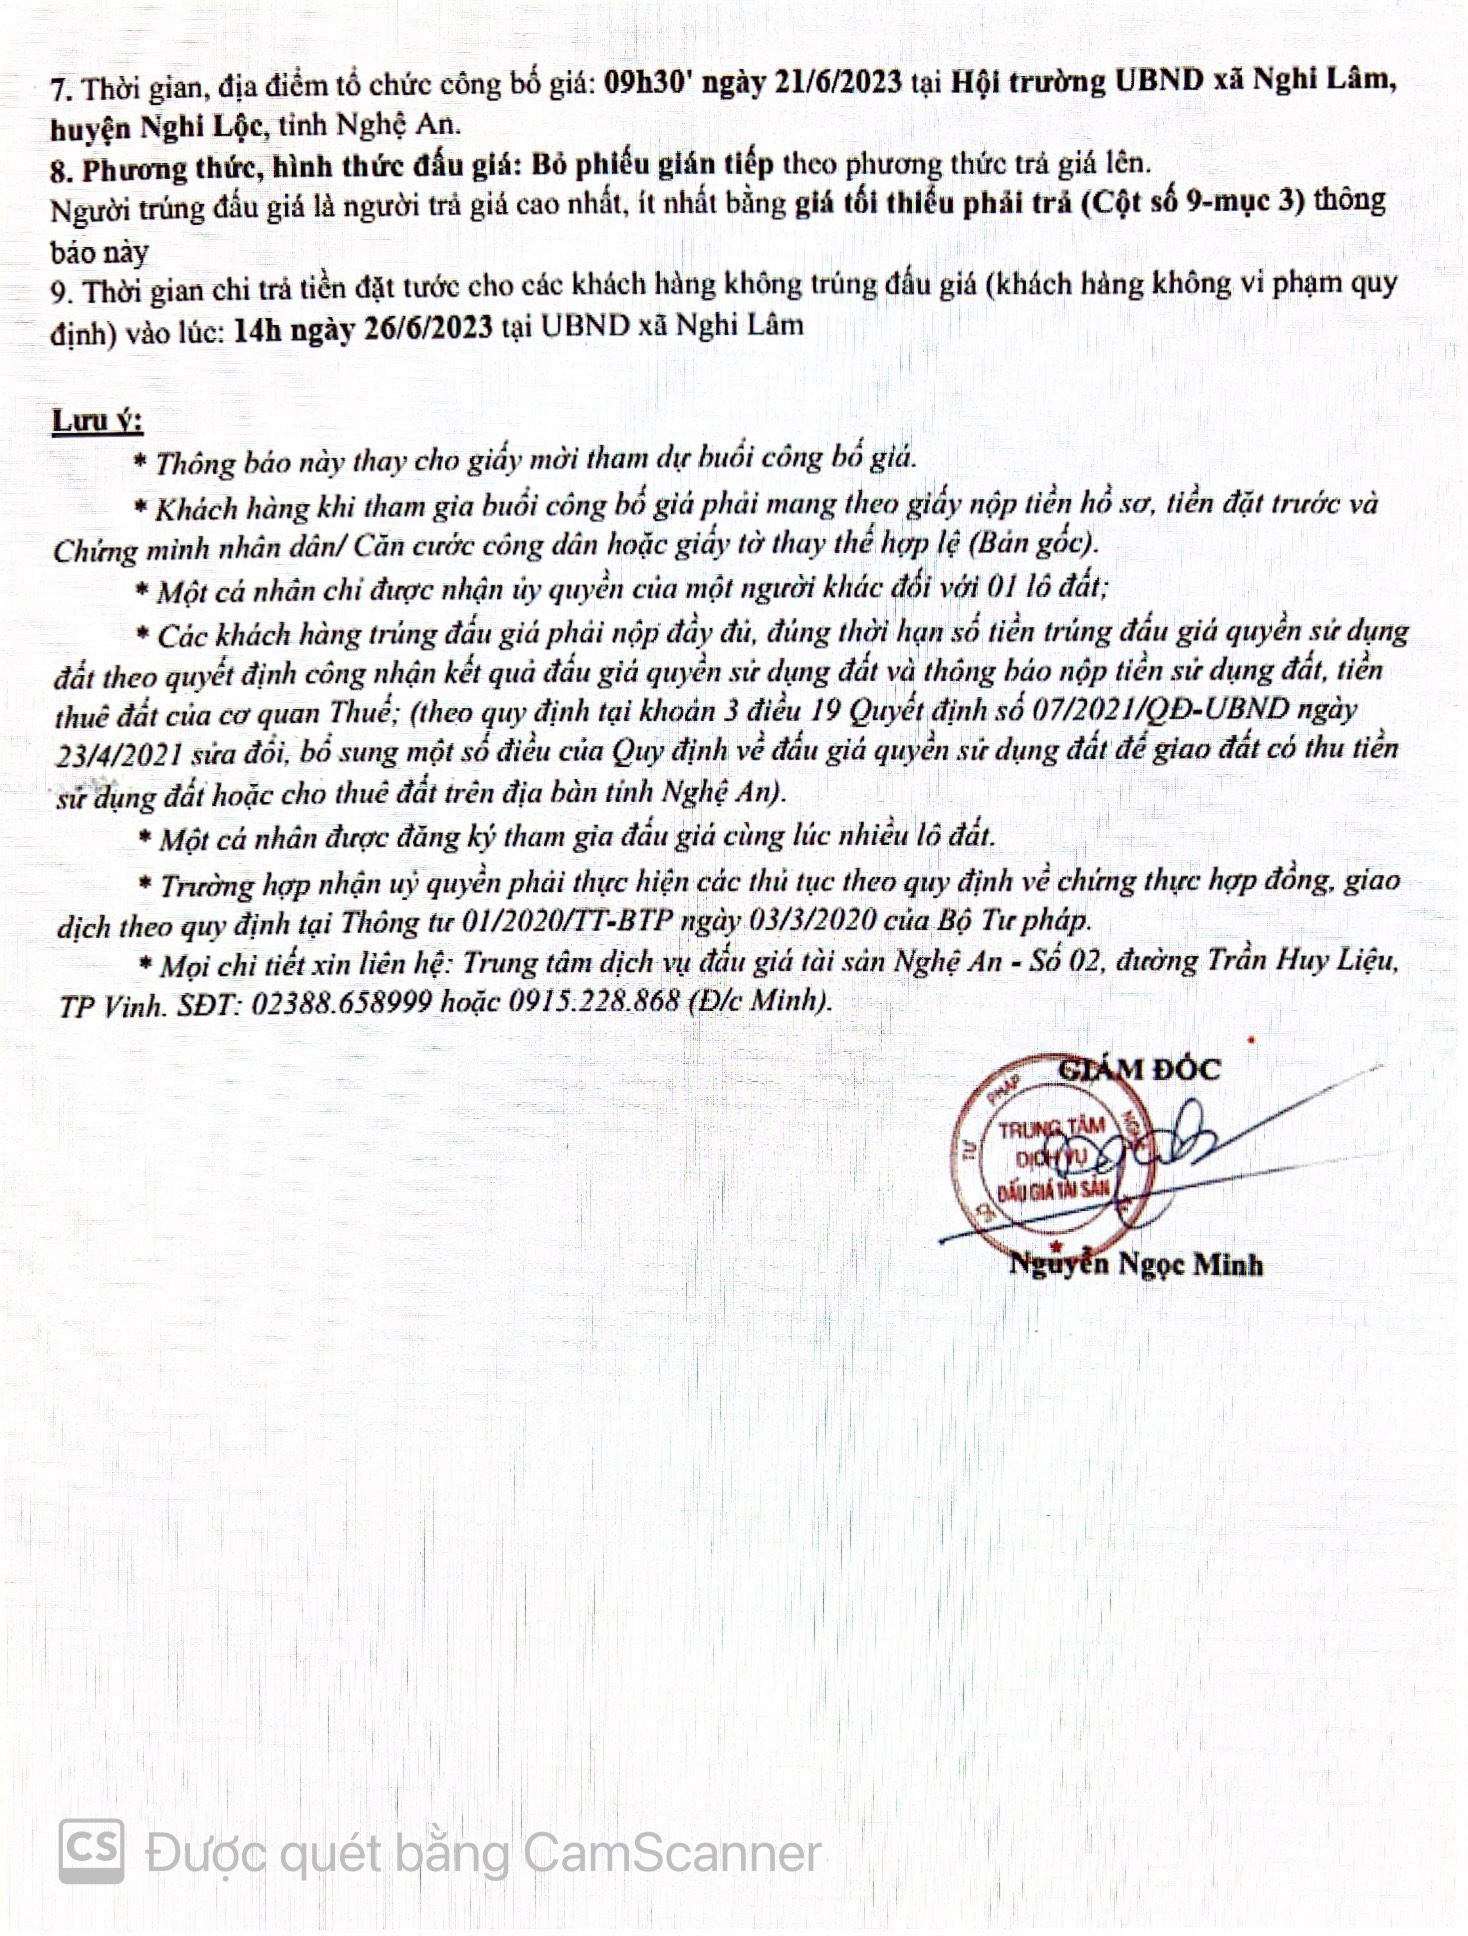 7. Thời gian, địa điểm tổ chức công bố giá: 09h30' ngày 21/6/2023 tại Hội trường UBND xã Nghi Lâm,
huyện Nghi Lộc, tỉnh Nghệ An.
8. Phương thức, hình thức đấu giá: Bỏ phiếu gián tiếp theo phương thức trả giá lên.
Người trúng đấu giá là người trả giá cao nhất, ít nhất bằng giá tối thiểu phải trả (Cột số 9-mục 3) thông
báo này
9. Thời gian chi trả tiền đặt tước cho các khách hàng không trúng đấu giá (khách hàng không vi phạm quy
định) vào lúc: 14h ngày 26/6/2023 tại UBND xã Nghi Lâm
Lưu ý:
* Thông báo này thay cho giấy mời tham dự buổi công bố giá.
* Khách hàng khi tham gia buổi công bố giá phải mang theo giấy nộp tiền hồ sơ, tiền đặt trước và
Chứng minh nhân dân/ Căn cước công dân hoặc giấy tờ thay thế hợp lệ (Bản gốc).
* Một cá nhân chỉ được nhận ủy quyền của một người khác đối với 01 lô đất;
* Các khách hàng trúng đấu giá phải nộp đầy đủ, đúng thời hạn số tiền trúng đấu giá quyền sử dụng
đất theo quyết định công nhận kết quả đấu giá quyền sử dụng đất và thông báo nộp tiền sử dụng đất, tiền
thuê đất của cơ quan Thuế; (theo quy định tại khoản 3 điều 19 Quyết định số 07/2021/QĐ-UBND ngày
23/4/2021 sửa đổi, bổ sung một số điều của Quy định về đấu giá quyền sử dụng đất để giao đất có thu tiền
sử dụng đất hoặc cho thuê đất trên địa bàn tỉnh Nghệ An).
* Một cá nhân được đăng ký tham gia đấu giá cùng lúc nhiều lô đất.
* Trường hợp nhận uỷ quyền phải thực hiện các thủ tục theo quy định về chứng thực hợp đồng, giao
dịch theo quy định tại Thông tư 01/2020/TT-BTP ngày 03/3/2020 của Bộ Tư pháp.
* Mọi chi tiết xin liên hệ: Trung tâm dịch vụ đấu giá tài sản Nghệ An - Số 02, đường Trần Huy Liệu,
TP Vinh. SĐT: 02388.658999 hoặc 0915.228.868 (Đ/c Minh).
GIÁM ĐỐC
SỞ TƯ PHÁP NGHỆ AN
TRUNG TÂM
DỊCH VỤ
ĐẤU GIÁ TÀI SẢN
Nguyễn Ngọc Minh
CS Được quét bằng CamScanner